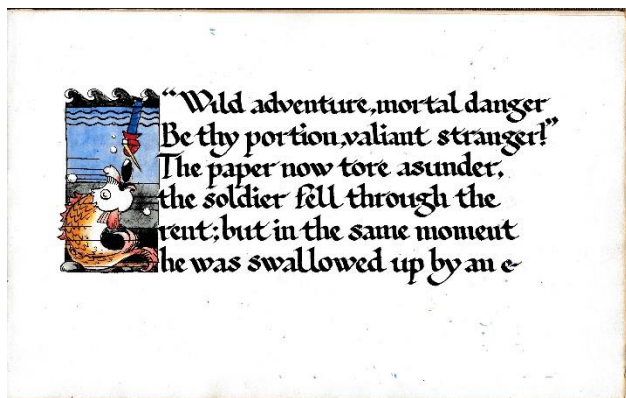 “Wild adventure, mortal danger
Be thy portion, valiant stranger!”
The paper now tore asunder,
the soldier fell through the
rent; but in the same moment
he was swallowed up by an e-